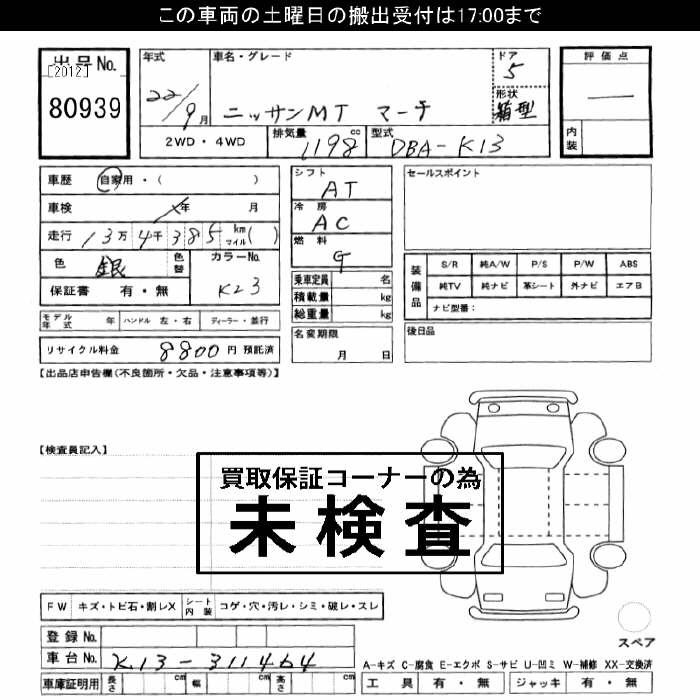 この車両の土曜日の搬出受付は17:00まで
出品No.
[2012]
80939
年式
22/9月
車名・グレード
ニッサンMT マーチ
ドア
5
形状
箱型
評価点
―
内装
2WD・4WD
排気量 cc
1198
型式
DBA-K13
車歴 自家用・( )
車検 年 月
走行 13万4千385 km マイル( )
色 銀 色替
カラーNo.
K23
保証書 有・無
モデル年式 年 ハンドル 左・右 ディーラー・並行
リサイクル料金 8800円 預託済
シフト
AT
冷房
AC
燃料
G
乗車定員 名
積載量 kg
総重量 kg
名変期限
月 日
セールスポイント
装備品
S/R 純A/W P/S P/W ABS
純TV 純ナビ 革シート 外ナビ エアB
ナビ型番:
後日品
【出品店申告欄(不良箇所・欠品・注意事項等)】
【検査員記入】
買取保証コーナーの為
未検査
FW キズ・トビ石・割レX シート内装 コゲ・穴・汚レ・シミ・破レ・スレ
登録No.
車台No. K13-311464
車庫証明用 長さ cm 幅 cm 高さ cm
スペア
A-キズ C-腐食 E-エクボ S-サビ U-凹ミ W-補修 XX-交換済
工具 有・無 ジャッキ 有・無